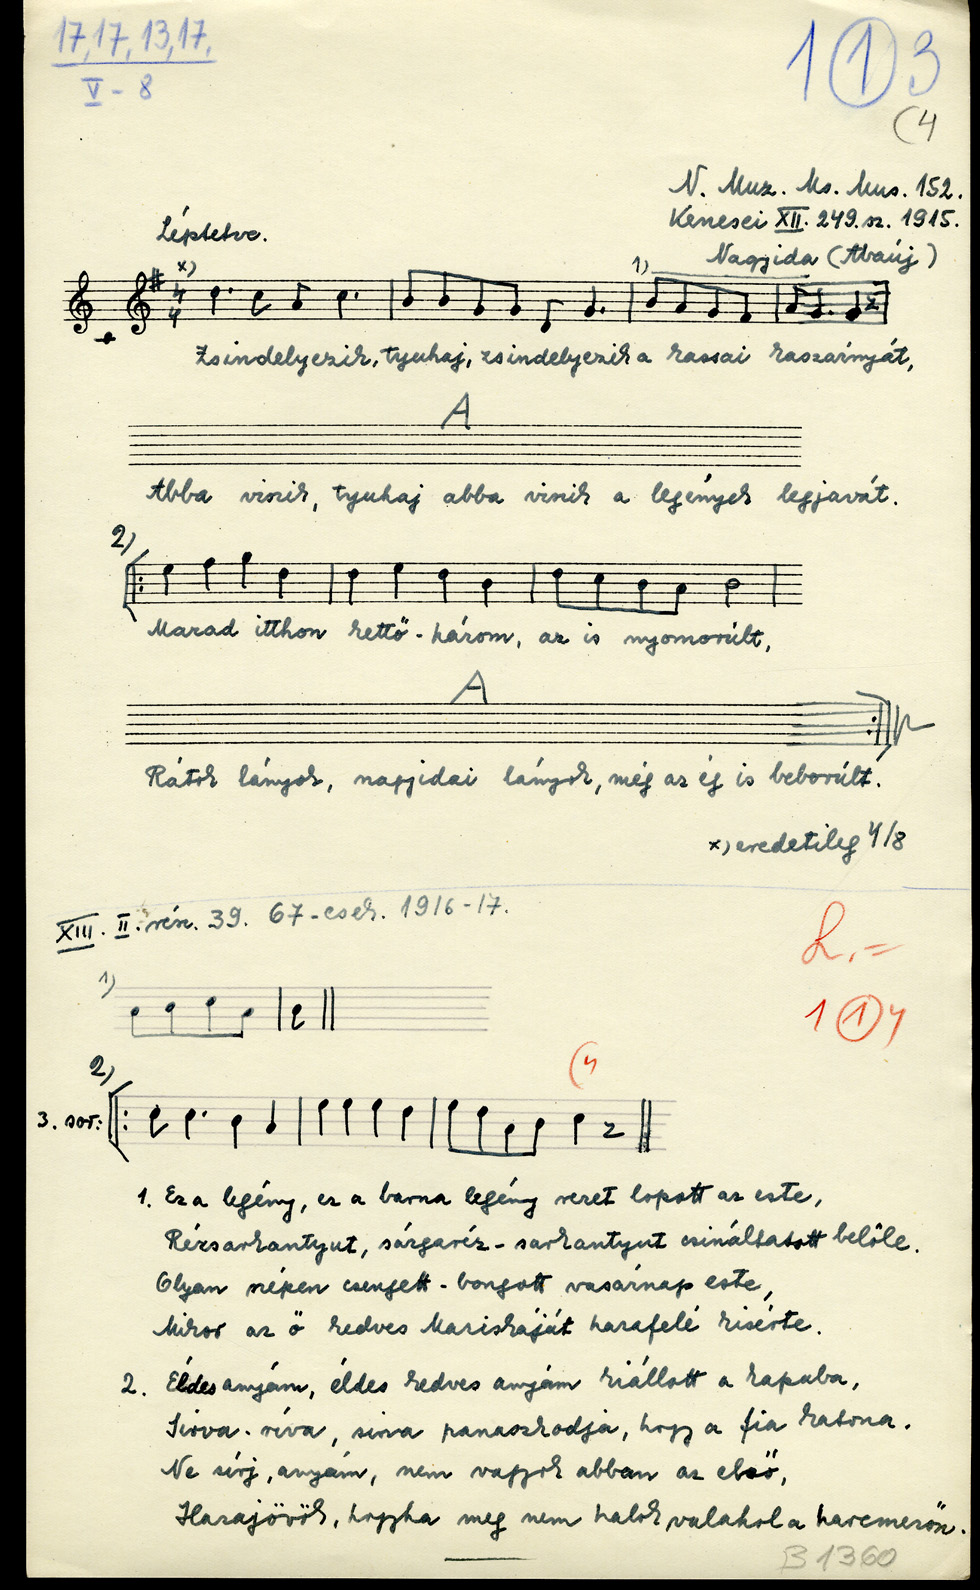 17, 17, 13, 17.
V - 8
1 1 3
(4
N. Muz. Ms. Mus. 152.
Kenesei XII. 249. sz. 1915.
Nagyida (Abaúj)
Léptetve.
x)
4
4
1)
Zsindelyezik, tyuhaj, zsindelyezik a kassai kaszárnyát,
A
Abba viszik, tyuhaj abba viszik a legények legjavát.
2)
Marad itthon kettő-három, az is nyomorúlt,
A
Rátok lányok, nagyidai lányok, még az ég is beborúlt.
x) eredetileg 4/8
XIII. II. rész. 39. 67-eser. 1916-17.
L. =
1 1 4
1)
(4
2)
3. sor:
1. Ez a legény, ez a barna legény rezet lopott az este,
Rézsarkantyut, sárgaréz-sarkantyut csináltatott belőle.
Olyan szépen csengett-bongott vasárnap este,
Mikor az ő kedves Mariskáját hazafelé kisérte.
2. Éldesanyám, éldes kedves anyám kiállott a kapuba,
Sirva-ríva, sirva panaszkodja, hogy a fia katona.
Ne sírj, anyám, nem vagyok abban az első,
Hazajövök, hogyha meg nem halok valahol a harcmezőn.
B 1360